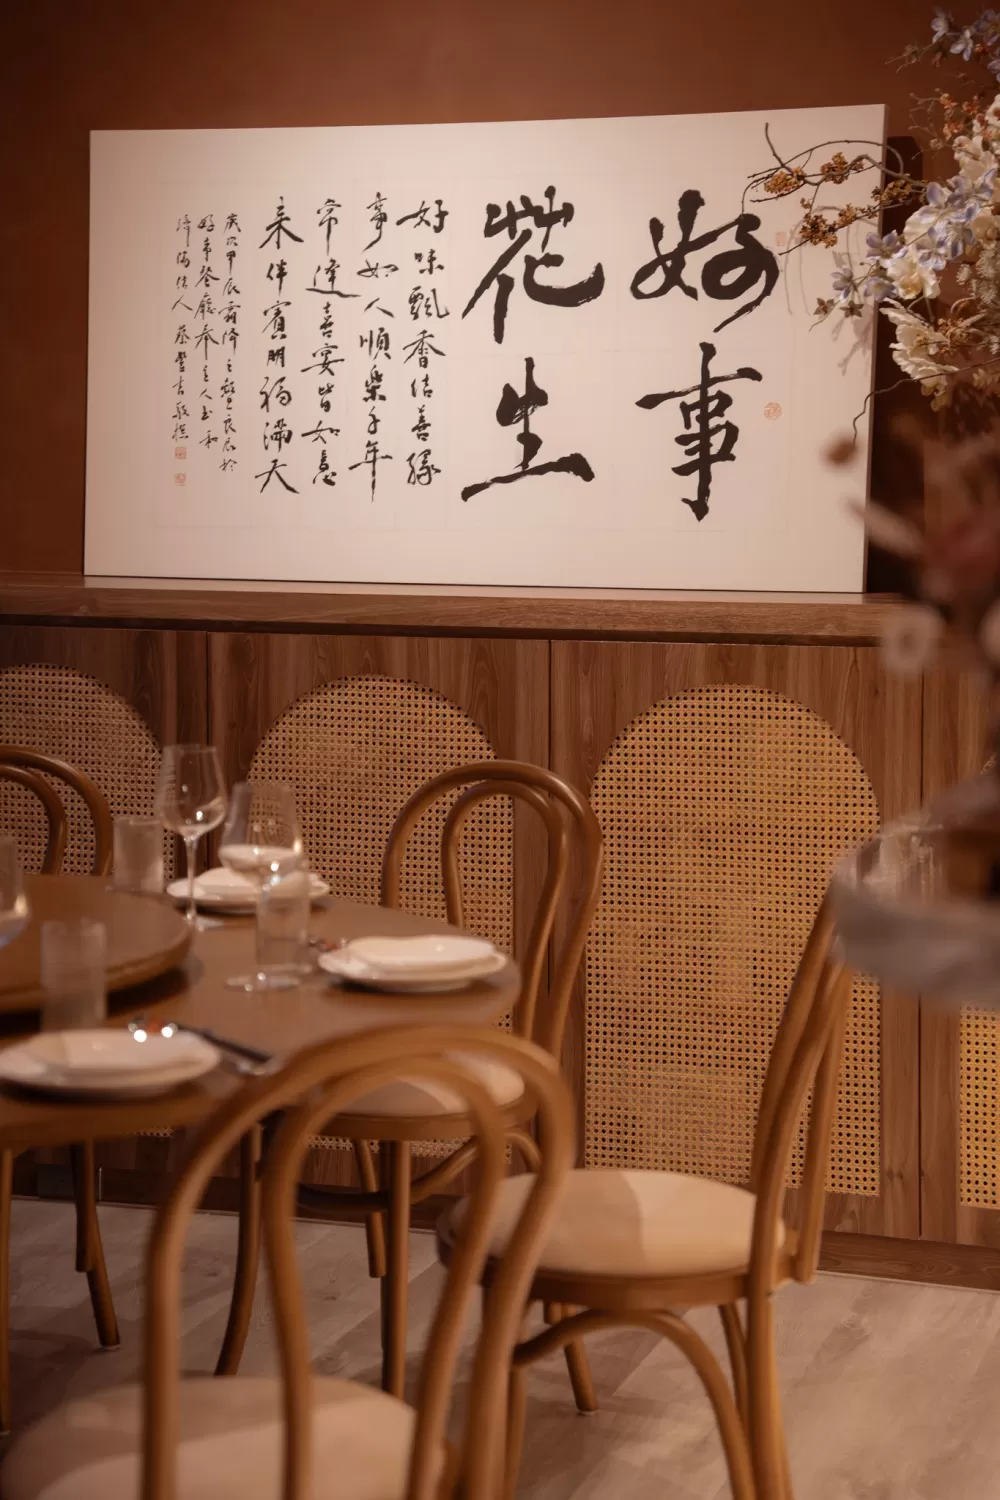 好事
花生
好味飄香結善緣
事如人順樂千年
常逢喜宴皆如意
來伴賓朋福滿天
歲次甲辰霜降之暨良辰於
好事餐廳奉主人玉和